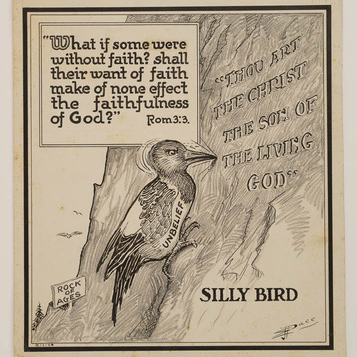 "What if some were
without faith? shall
their want of faith
make of none effect
the faithfulness
of God?" Rom 3:3.
"THOU ART
THE CHRIST
THE SON OF
THE LIVING
GOD"
UNBELIEF
ROCK
OF
AGES
SILLY BIRD
Pace